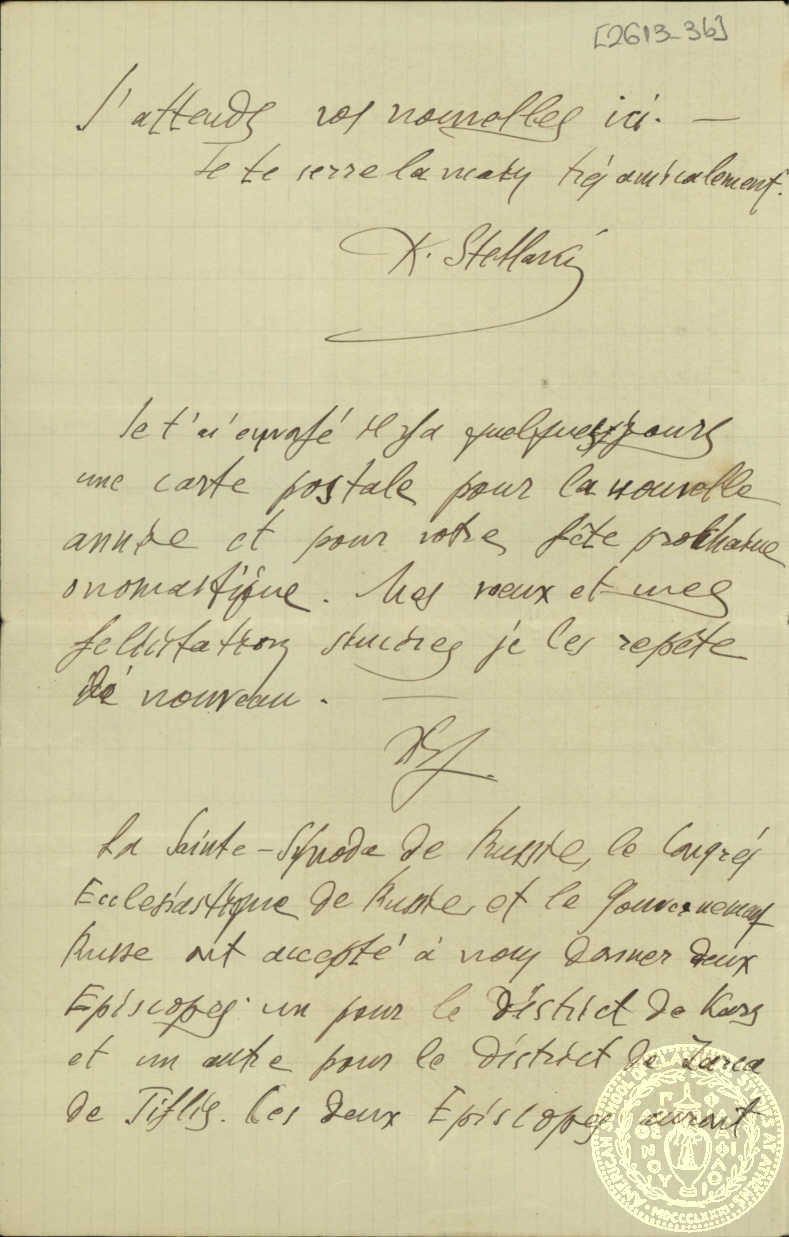 [2613-36]
J'attends vos nouvelles ici. —
Je te serre la main très amicalement.
K. Stellaki
Je t'ai envoyé il y a quelques jours
une carte postale pour la nouvelle
année et pour votre fête prochaine
onomastique. Mes vœux et mes
felicitations sincères je les repète
de nouveau. —
La Sainte-Synode de Russie, le Congrés
Ecclesiastique de Russie, et le Gouvernement
Russe ont accepté à nous donner deux
Episcopes: un pour le district de Kars
et un autre pour le district de
de Tiflis. Ces deux Episcopes auront
AMERICAN SCHOOL OF CLASSICAL STUDIES AT ATHENS
MDCCCLXXXI